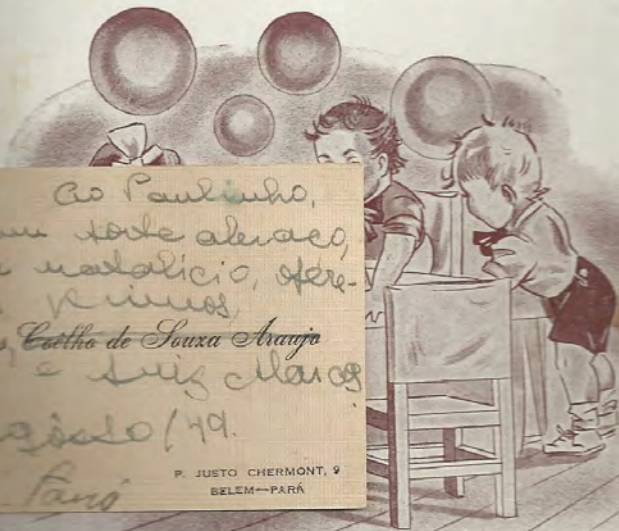 Ao Paulinho,
um forte abraço,
natalicio, ofere-
primos,
Coelho de Souza Araujo
e Luiz Marcos
agôsto/49.
P. JUSTO CHERMONT, 9
BELEM—PARÁ